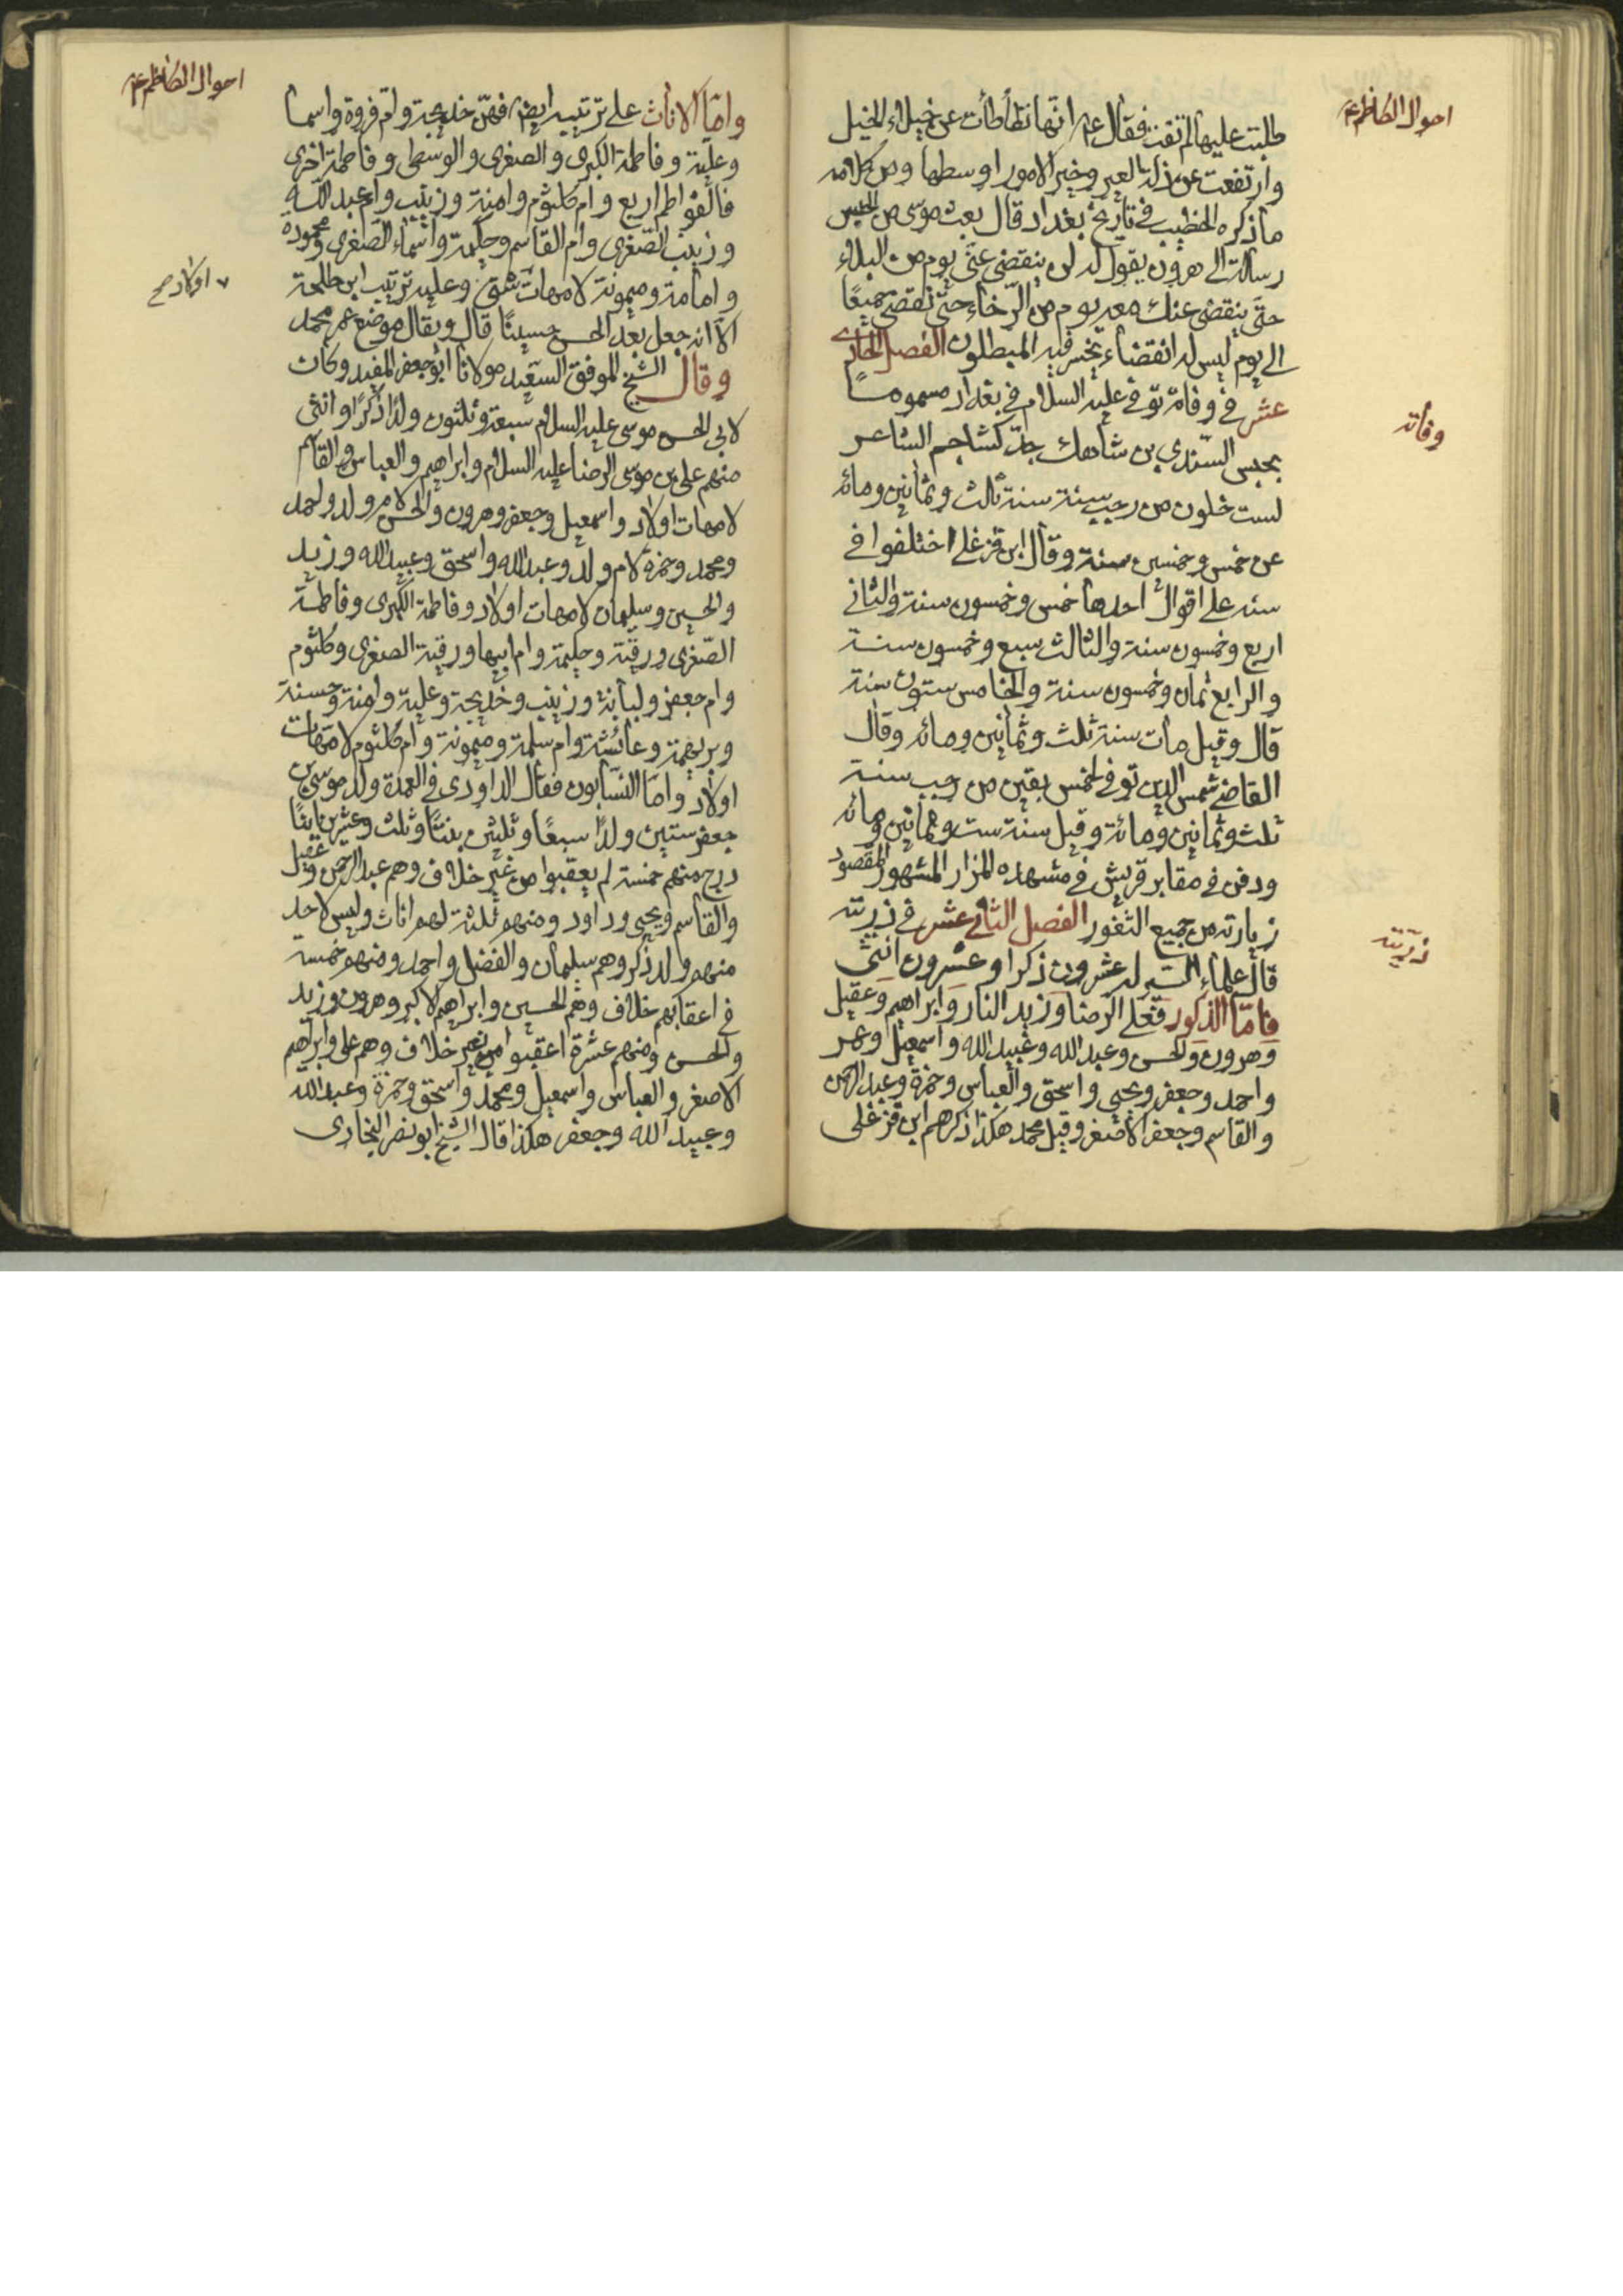 احوال الكاظم ع
طلبت عليها لم تفت فقال ع انها تطأطأت عن خيلاء الخيل
وارتفعت عن ذلة العير وخير الامور اوسطها ومن كلامه
ما ذكره الخطيب في تاريخ بغداد قال بعث موسى من الحبس
رسالة الى هرون يقول له لن ينقضي عني يوم من البلاء
حتى ينقضي عنك معه يوم من الرخاء حتى نقضي جميعًا
الى يوم ليس له انقضاء يخسر فيه المبطلون الفصل الحادي
عشر في وفاته توفي عليه السلام في بغداد مسموما
وفاته
بحبس السندي بن شاهك جد كشاجم الشاعر
لست خلون من رجب سنة سنة ثلث وثمانين ومائه
عن خمس وخمسين سنة وقال ابن قزغلي اختلفوا في
سنه على اقوال احدها خمس وخمسون سنة والثاني
اربع وخمسون سنة والثالث سبع وخمسون سنة
والرابع ثمان وخمسون سنة والخامس ستون سنة
قال وقيل مات سنة ثلث وثمانين ومائه وقال
القاضي شمس الدين توفي لخمس بقين من رجب سنة
ثلث وثمانين ومائة وقيل سنة ست وثمانين ومائه
ودفن في مقابر قريش في مشهده المزار المشهور المقصود
زيارته من جميع الثغور الفصل الثاني عشر في ذريته
ذريته
قال علماء السير له عشرون ذكرا وعشرون انثى
فاما الذكور فعلي الرضا وزيد النار وابراهيم وعقيل
وهرون والحسن وعبد الله وعبيد الله واسمعيل وعمر
واحمد وجعفر ويحيى واسحق والعباس وحمزة وعبد الرحمن
والقاسم وجعفر الاصغر وقيل محمد هكذا ذكرهم ابن قزغلي
احوال الكاظم ع
واما الاناث على ترتيبه ايضا فهن خديجة وام فروة واسما
وعلية وفاطمة الكبرى والصغرى والوسطى وفاطمة اخرى
فالفواطم اربع وام كلثوم وامنة وزينب وام عبد الله
وزينب الصغرى وام القاسم وحكيمة واسماء الصغرى ومحمودة
وامامة وميمونة لامهات شتى وعليه ترتيب ابن طلحة
٧ اولاد صح
الا انه جعل بعد الحسن حسينًا قال ويقال موضع عمر محمد
وقال الشيخ الموفق السعيد مولانا ابو جعفر المفيد وكان
لابي الحسن موسى عليه السلام سبعة وثلثون ولدًا ذكرًا وانثى
منهم علي بن موسى الرضا عليه السلام وابراهيم والعباس والقاسم
لامهات اولاد واسمعيل وجعفر وهرون والحسن لام ولد واحمد
ومحمد وحمزة لام ولد وعبد الله واسحق وعبيد الله وزيد
والحسين وسليمان لامهات اولاد وفاطمة الكبرى وفاطمة
الصغرى ورقية وحليمة وام ابيها ورقية الصغرى وكلثوم
وام جعفر ولبابة وزينب وخديجة وعلية وامنة وحسنة
وبريهة وعائشة وام سلمة وميمونة وام كلثوم لامهات
اولاد واما النسابون فقال الداودي في العمدة ولد موسى بن
جعفر ستين ولدًا سبعًا وثلثين بنتًا وثلث وعشرين ابنًا
درج منهم خمسة لم يعقبوا من غير خلاف وهم عبد الرحمن وعقيل
والقاسم ويحيى وداود ومنهم ثلثة لهم اناث وليس لاحد
منهم ولد ذكر وهم سليمان والفضل واحمد ومنهم خمسة
في اعقابهم خلاف وهم الحسين وابراهيم الاكبر وهرون وزيد
والحسن ومنهم عشرة اعقبوا من غير خلاف وهم علي وابراهيم
الاصغر والعباس واسمعيل ومحمد واسحق وحمزة وعبد الله
وعبيد الله وجعفر هكذا قال الشيخ ابو نصر البخاري